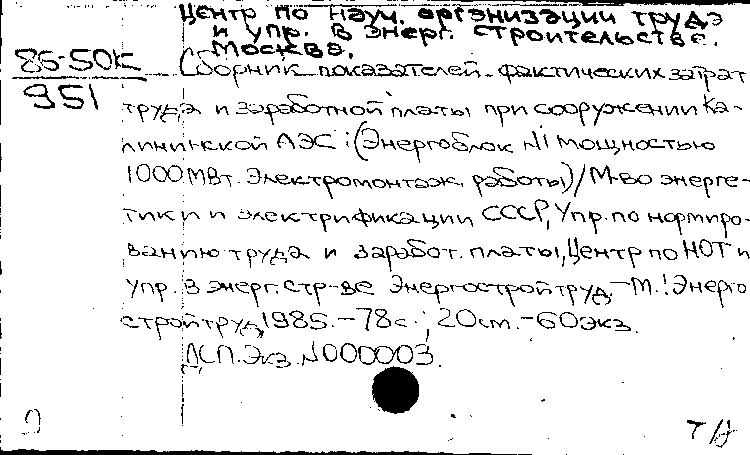 Центр по науч. организации труда
и упр. в энерг. строительстве.
Москва.
86-50К
951
Сборник показателей фактических затрат
труда и заработной платы при сооружении Ка-
лининской АЭС : (Энергоблок N1 мощностью
1000 МВт. Электромонтаж. работы) / М-во энерге-
тики и электрификации СССР, Упр. по нормиро-
ванию труда и заработ. платы, Центр по НОТ и
упр. в энерг. стр-ве Энергостройтруд. - М. : Энерго
стройтруд, 1985. - 78 с. ; 20 см. - 60 экз.
ДСП. Экз. N000003.